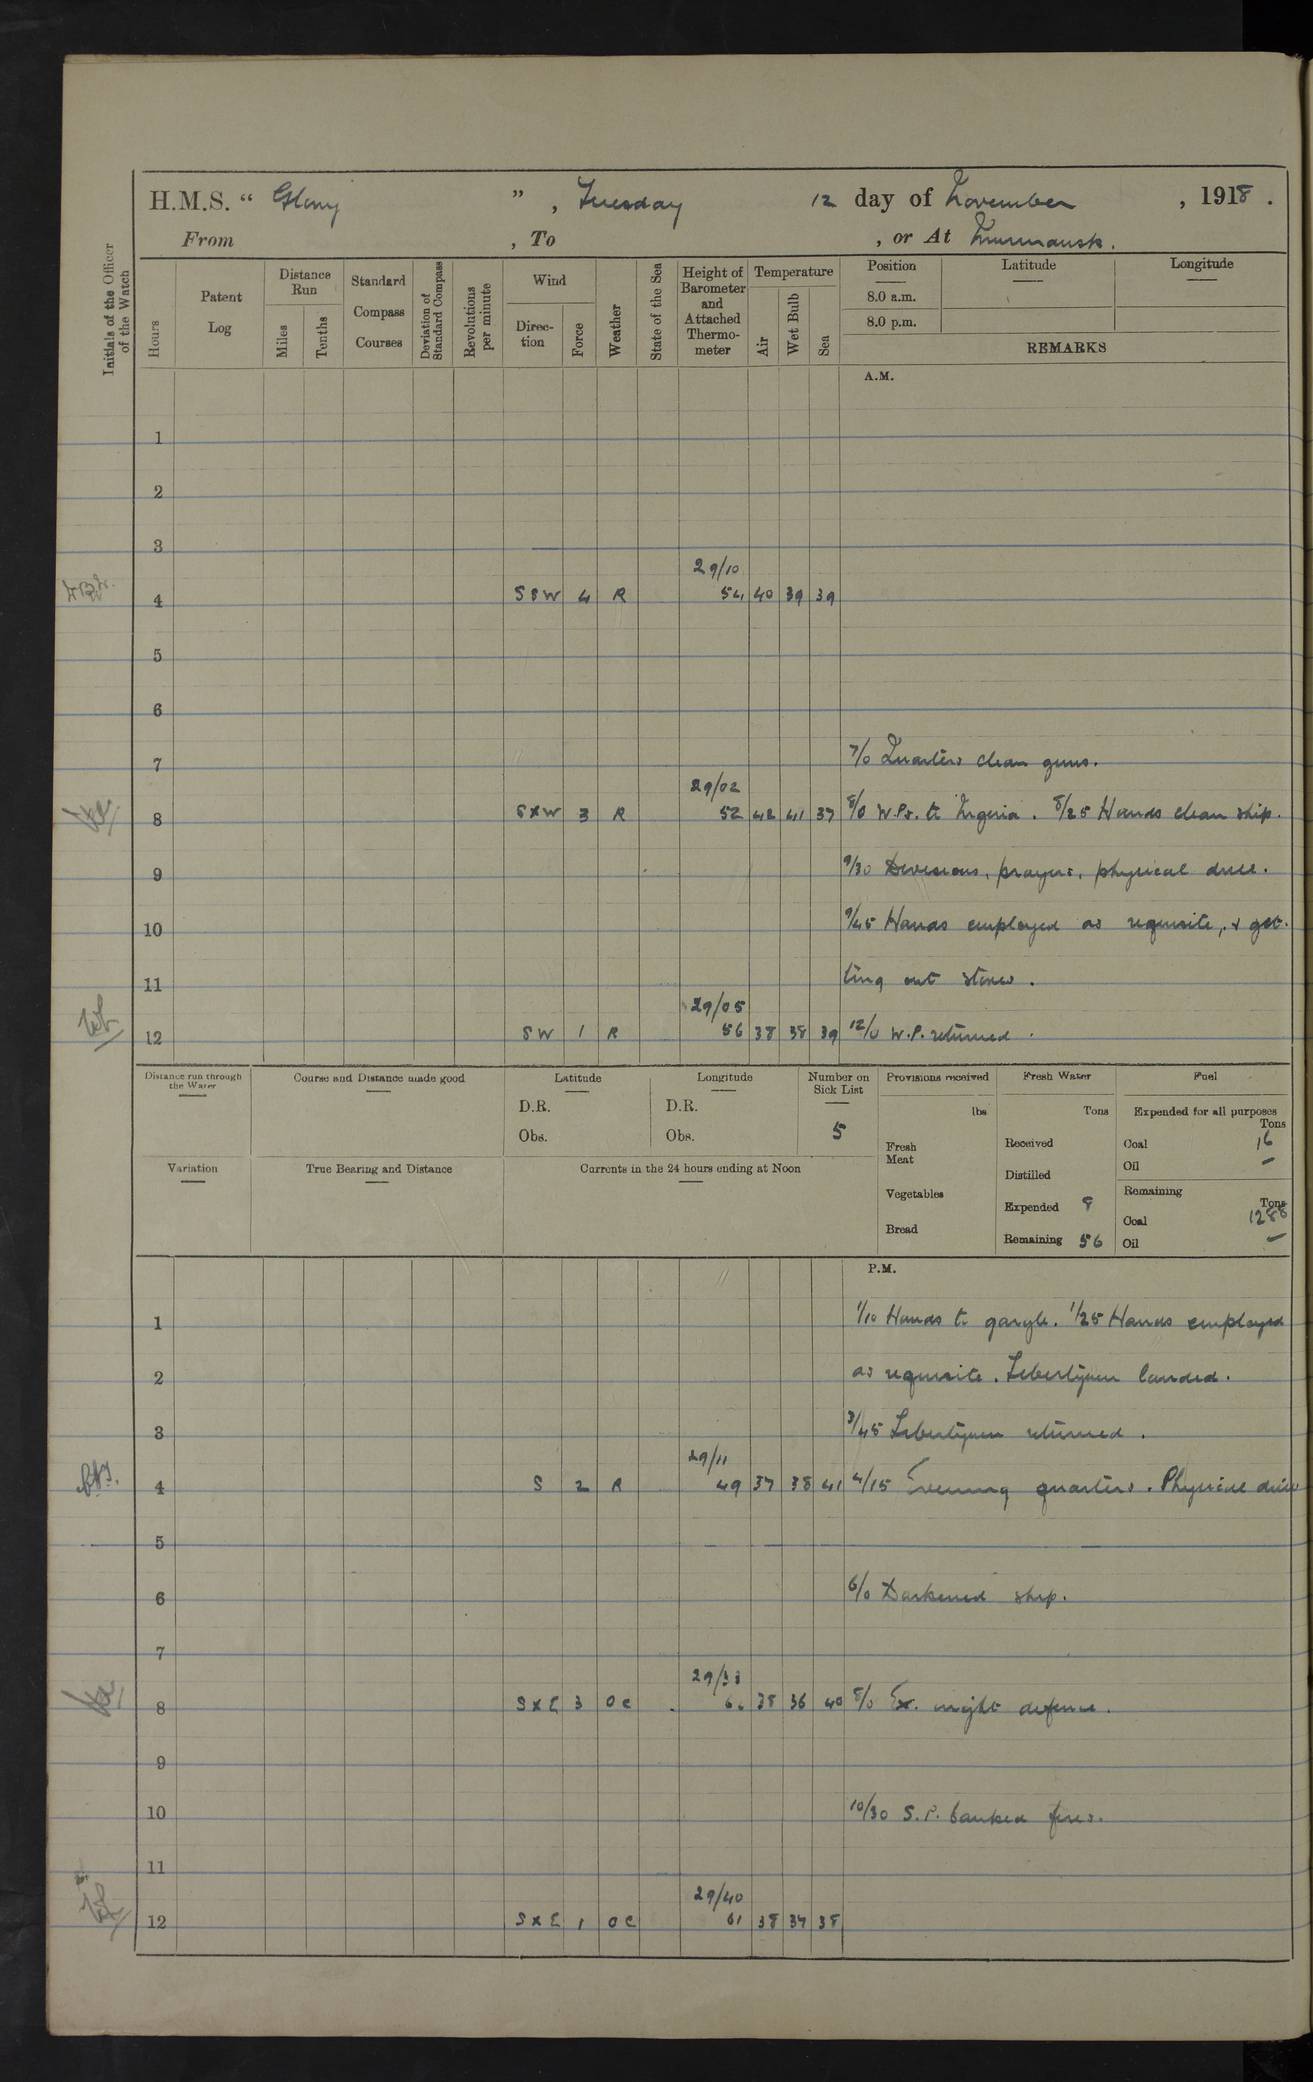 H.M.S. “ Glory ” , Tuesday 12 day of November , 1918 .
From , To , or At Murmansk.
Initials of the Officer of the Watch
Hours
Patent Log
Distance Run
Miles
Tenths
Standard Compass Courses
Deviation of Standard Compass
Revolutions per minute
Wind
Direc-tion
Force
Weather
State of the Sea
Height of Barometer and Attached Thermo-meter
Temperature
Air
Wet Bulb
Sea
Position Latitude Longitude
8.0 a.m.
8.0 p.m.
REMARKS
A.M.
1
2
3
29/10
4 SSW 4 R 54 40 39 39
5
6
7 7/0 Quarters clean guns.
29/02
8 SXW 3 R 52 42 41 37 8/0 W.Ps. to Nigeria. 8/25 Hands clean ship.
9 9/30 Divisions, prayers, physical drill.
10 9/45 Hands employed as requisite, & get-
11 ting out stores.
29/05
12 SW 1 R 56 38 38 39 12/0 W.P. returned.
Distance run through the Water
Course and Distance made good
Latitude
D.R.
Obs.
Longitude
D.R.
Obs.
Number on Sick List
5
Provisions received
lbs
Fresh Meat
Vegetables
Bread
Fresh Water
Tons
Received
Distilled
Expended 8
Remaining 56
Fuel
Expended for all purposes
Tons
Coal 16
Oil –
Remaining
Tons
Coal 1288
Oil –
Variation
True Bearing and Distance
Currents in the 24 hours ending at Noon
P.M.
1 1/10 Hands to gargle. 1/25 Hands employed
2 as requisite. Libertymen landed.
3 3/45 Libertymen returned.
29/11
4 S 2 R 49 37 38 41 4/15 Evening quarters. Physical drill
5
6 6/0 Darkened ship.
7
29/33
8 SXE 3 OC 38 36 40 8/0 Ex. night defence.
9
10 10/30 S.P. banked fires.
11
29/40
12 SXE 1 OC 61 38 37 38